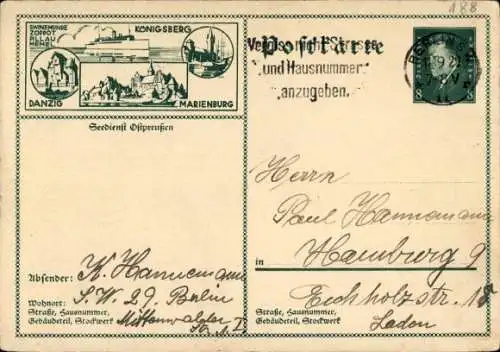 188
SWINEMÜNDE
ZOPPOT
PILLAU
MEMEL
KÖNIGSBERG
DANZIG
MARIENBURG
Seedienst Ostpreußen
Postkarte
Straße
und Hausnummer
anzugeben.
BERLIN S
8
Herrn
Paul Hannemann
in Hamburg 9
Eichholzstr. 18
Straße, Hausnummer,
Gebäudeteil, Stockwerk
Laden
Absender: K. Hannemann
Wohnort: S.W. 29. Berlin
Straße, Hausnummer,
Gebäudeteil, Stockwerk
Mittenwalder